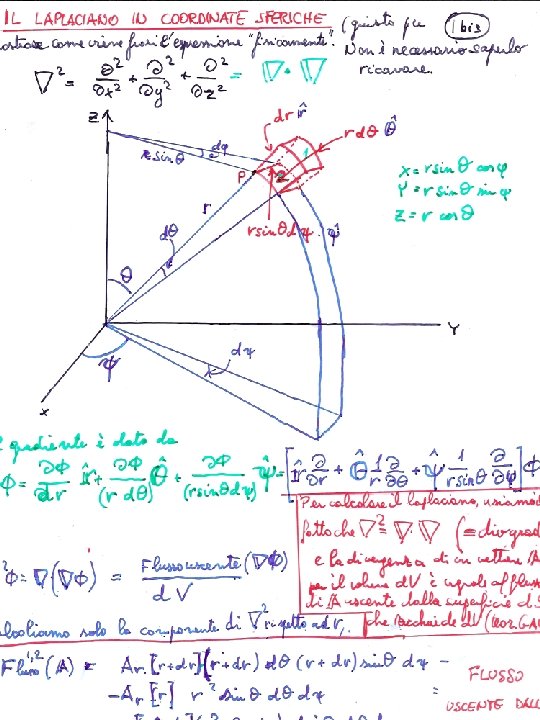 IL LAPLACIANO IN COORDINATE SFERICHE (questo per 1 bis
come viene fuori l'espressione "fisicamente". Non è necessario saperlo
ricavare.
∇² = ∂²/∂x² + ∂²/∂y² + ∂²/∂z² = ∇·∇
Z
dr r̂
r dθ θ̂
r sinθ
dφ
P
2
r
dθ
θ
r sinθ dφ φ̂
X = r sinθ cosφ
Y = r sinθ sinφ
Z = r cosθ
Y
dφ
φ
X
gradiente è dato da
Φ = ∂Φ/∂r r̂ + ∂Φ/(r dθ) θ̂ + ∂Φ/(r sinθ dφ) φ̂ = [r̂ ∂/∂r + θ̂ 1/r ∂/∂θ + φ̂ 1/(r sinθ) ∂/∂φ] Φ
Per calcolare il laplaciano, usiamo
fatto che ∇² = ∇·∇ (= div grad
e la divergenza di un vettore A
per il volume dV è uguale al flusso
di A uscente dalla superficie dS
che racchiude dV (teor. GAU
²Φ = ∇(∇Φ) = Flusso uscente (∇Φ) / dV
solo la componente di ∇² rispetto ad r,
Flusso¹,² (A) = Ar [r+dr] (r+dr) dθ (r+dr) sinθ dφ -
-Ar [r] r² sinθ dθ dφ
= FLUSSO
USCENTE DALL